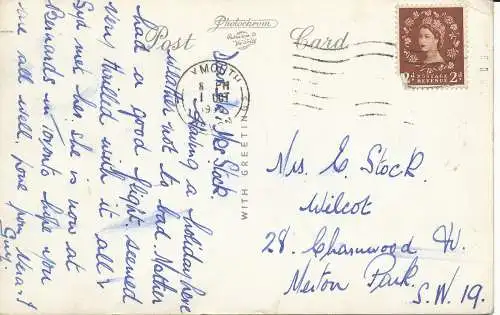 Photochrom
Post Card
YMOUTH
WITH GREETINGS
POSTAGE REVENUE
2d 2d
Dear Mrs Stock.
Having a holiday here
weather not to bad. Mother
had a good flight. seemed
very thrilled with it all.
Syd met her, she is now at
Bernards in toronto hope you
are all well, love from Vera &
Guy.
Mrs. E Stock.
Wilcot
28. Charnwood Av.
Merton Park.
S.W. 19.